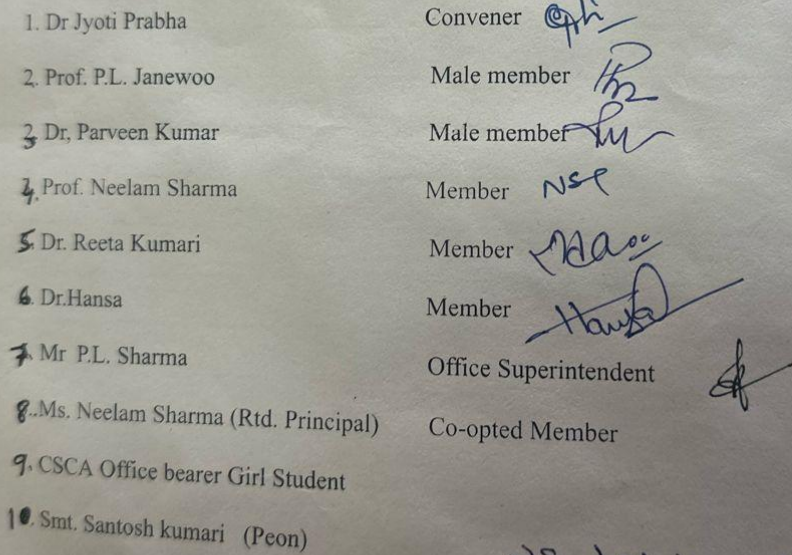 1. Dr Jyoti Prabha Convener
2. Prof. P.L. Janewoo Male member
3 Dr, Parveen Kumar Male member
4. Prof. Neelam Sharma Member
5. Dr. Reeta Kumari Member
6. Dr.Hansa Member Hansa
7. Mr P.L. Sharma Office Superintendent
8..Ms. Neelam Sharma (Rtd. Principal) Co-opted Member
9. CSCA Office bearer Girl Student
10. Smt. Santosh kumari (Peon)